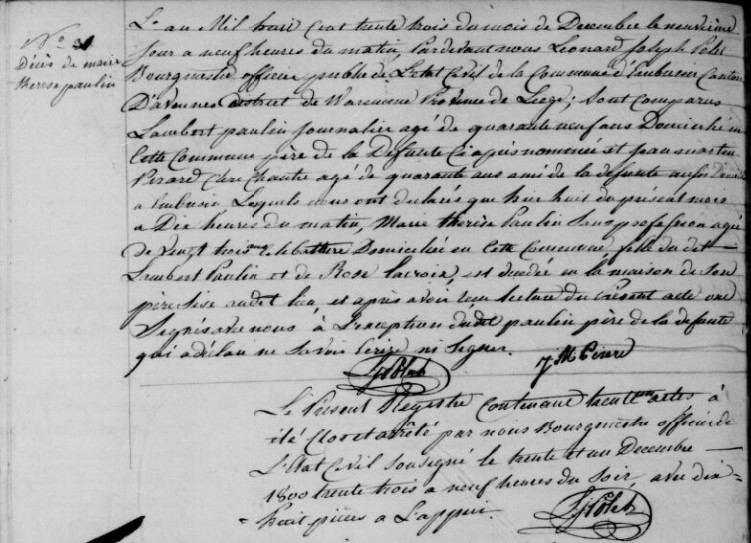 N° 31
Décès de marie
therese paulin
L'an Mil huit Cent trente trois du mois de Decembre le neuvième
jour a neuf heures du matin, Pardevant nous Leonard Joseph
Bourgmestre officier public de L'etat Civil de la Commune d'Embresin Canton
D'avennes district de Waremme Province de Liege; Sont Comparus
Lambert paulin Journalier agé de quarante neuf ans Domicilié en
Cette Commune père de la Defunte Ci après nommée et jean martin
Clerc Chantre agé de quarante ans ami de la defunte aussi Domicilié
a Embresin Lesquels nous ont declarés que hier huit du présent mois
a Dix heures du matin, Marie therèse Paulin Sans profession agée
de Vingt trois ans Celibattaire Domiciliée en Cette Commune fille du dit
Lambert Paulin et de Rose lacroix est decedée en la maison de Son
père Sise audit lieu et après avoir lecture du Présent acte ont
Signés avec nous à L'exception dudit paulin père de la defunte
qui a déclaré ne Savoir Ecrire ni Signer.
Le Présent Registre Contenant trente un actes à
été Clos et arrêté par nous Bourgmestre officier de
L'Etat Civil Soussigné le trente et un Decembre
1800 trente trois a neuf heures du Soir, avec dix
huit pièces a L'appui.